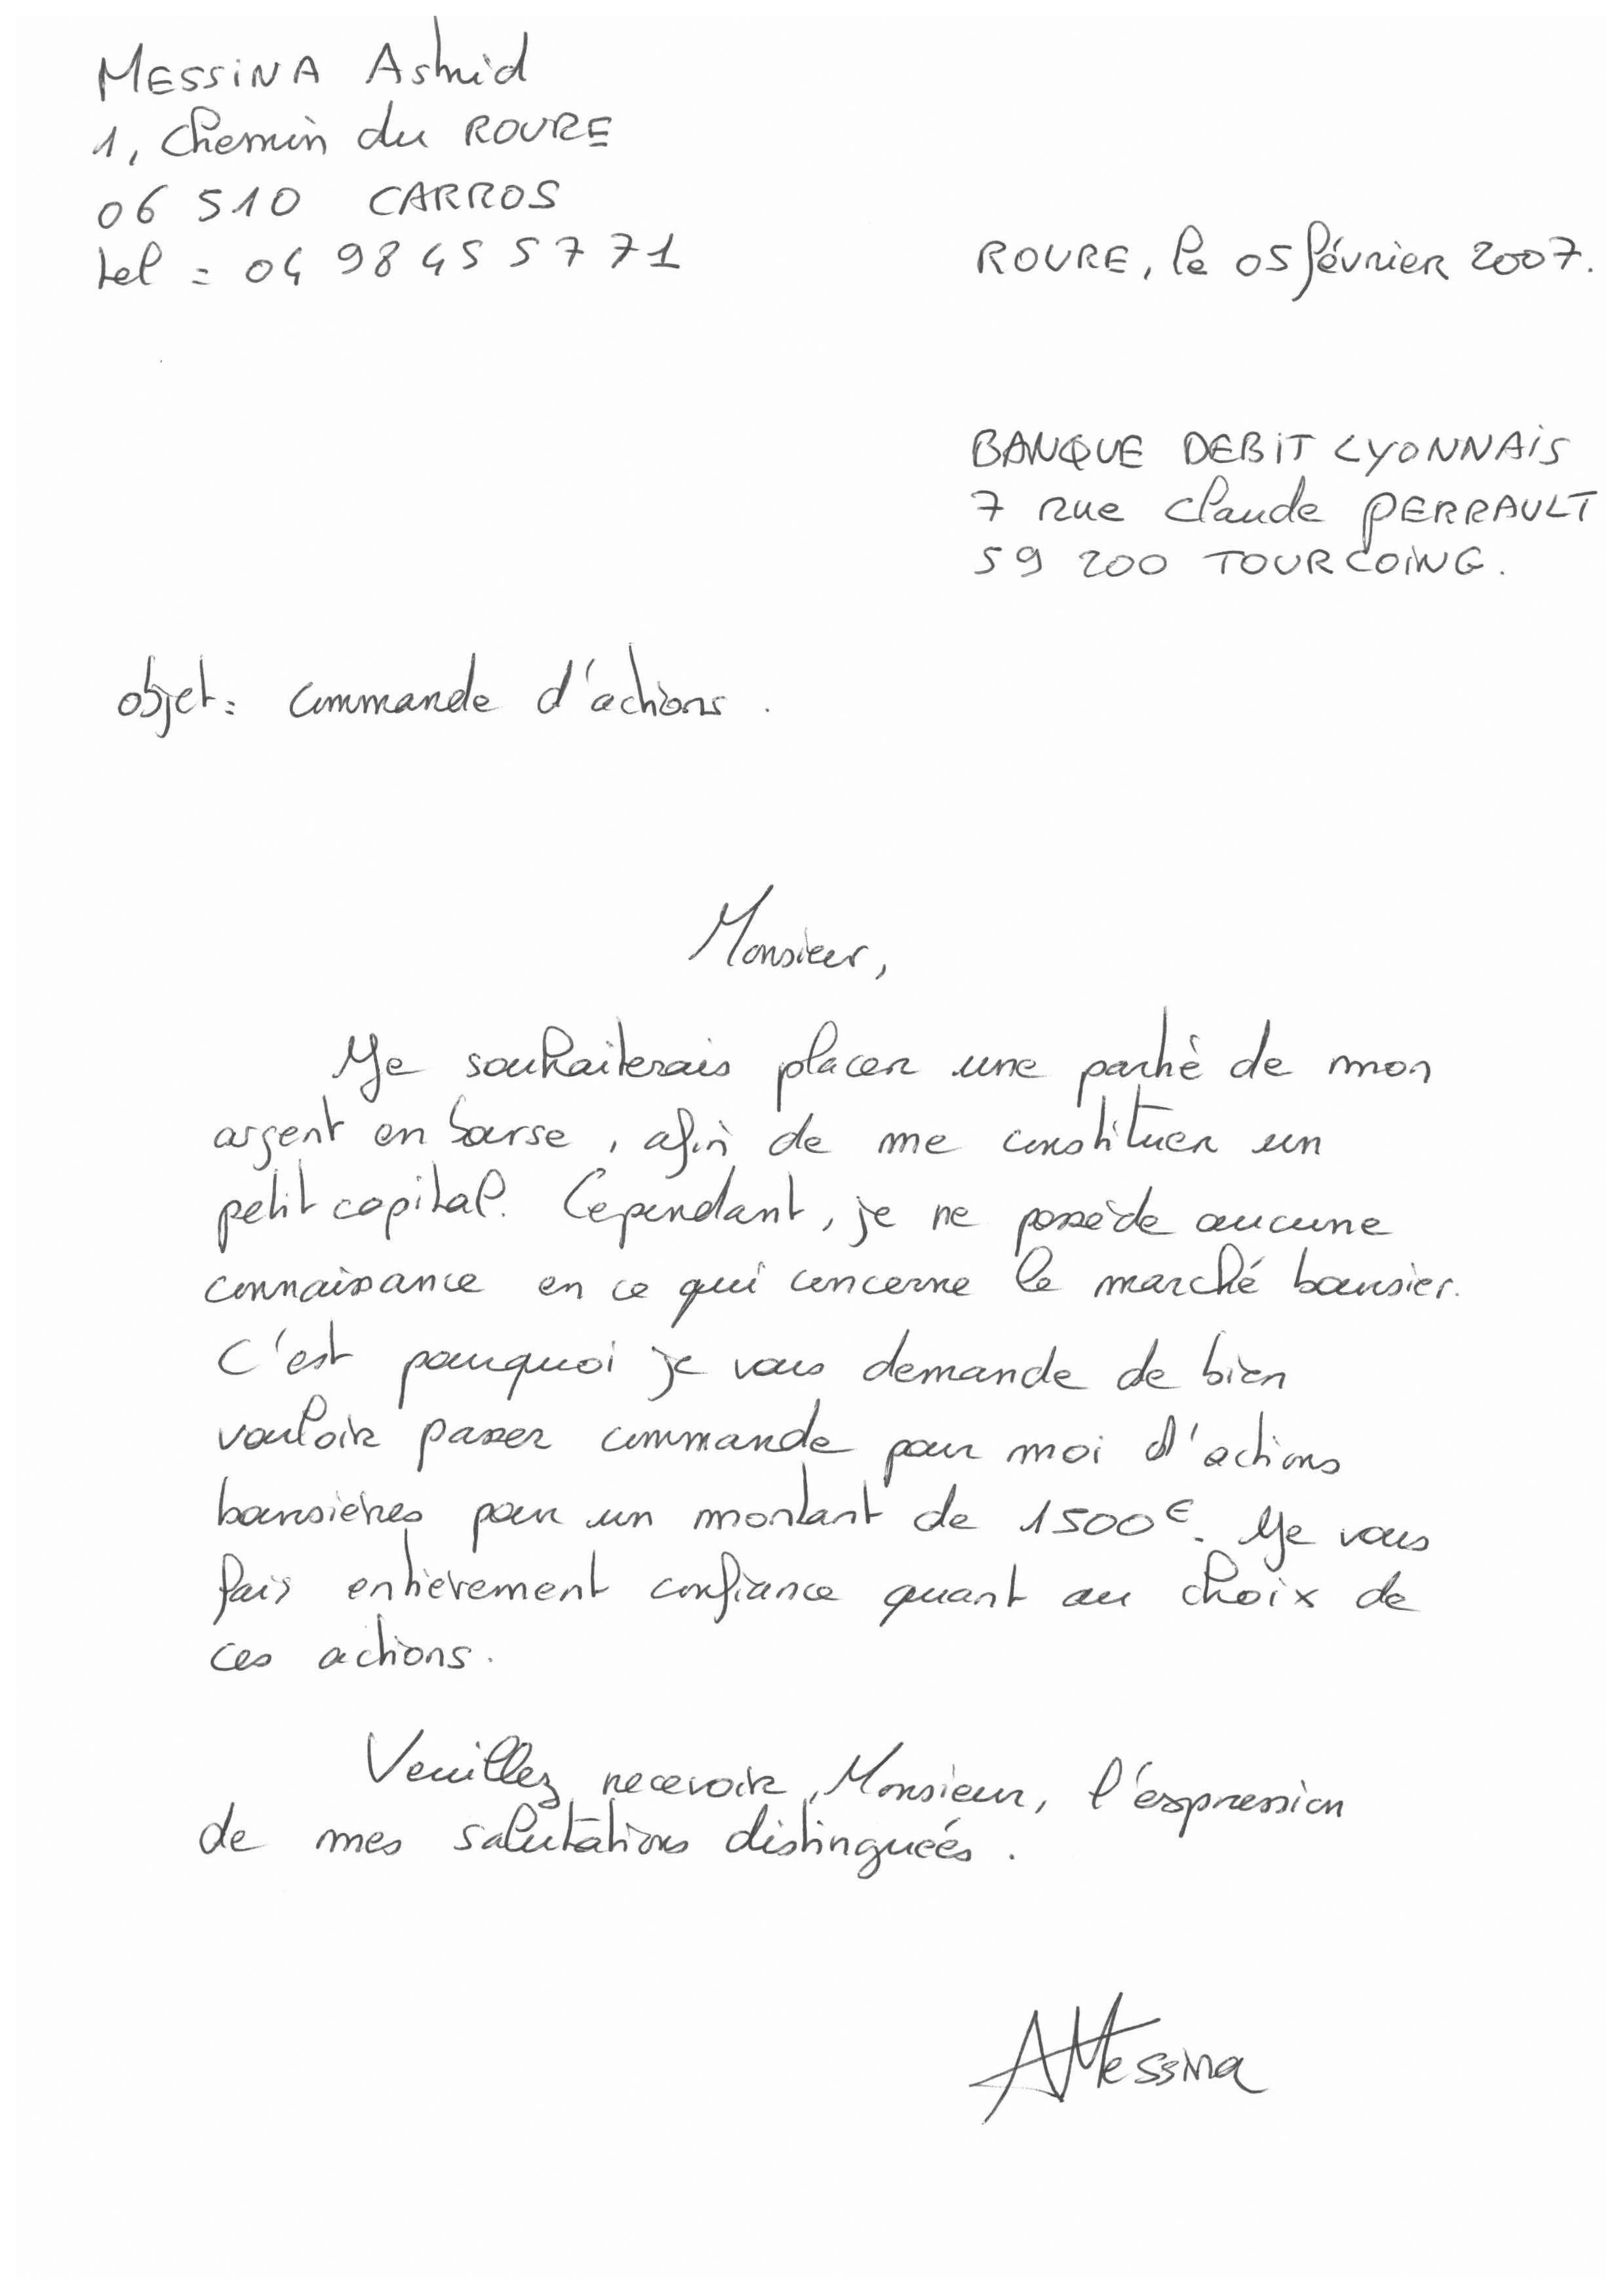 MESSINA Astrid
1, Chemin du ROURE
06 510 CARROS
tel = 04 98 45 57 71
ROURE, le 05 février 2007.
BANQUE DEBIT LYONNAIS
7 rue Claude PERRAULT
59 200 TOURCOING.
objet : commande d'actions.
Monsieur,
Je souhaiterais placer une partie de mon
argent en bourse, afin de me constituer un
petit capital. Cependant, je ne possède aucune
connaissance en ce qui concerne le marché boursier.
C'est pourquoi je vous demande de bien
vouloir passer commande pour moi d'actions
boursières pour un montant de 1500€. Je vous
fais entièrement confiance quant au choix de
ces actions.
Veuillez recevoir, Monsieur, l'expression
de mes salutations distinguées.
AMessina